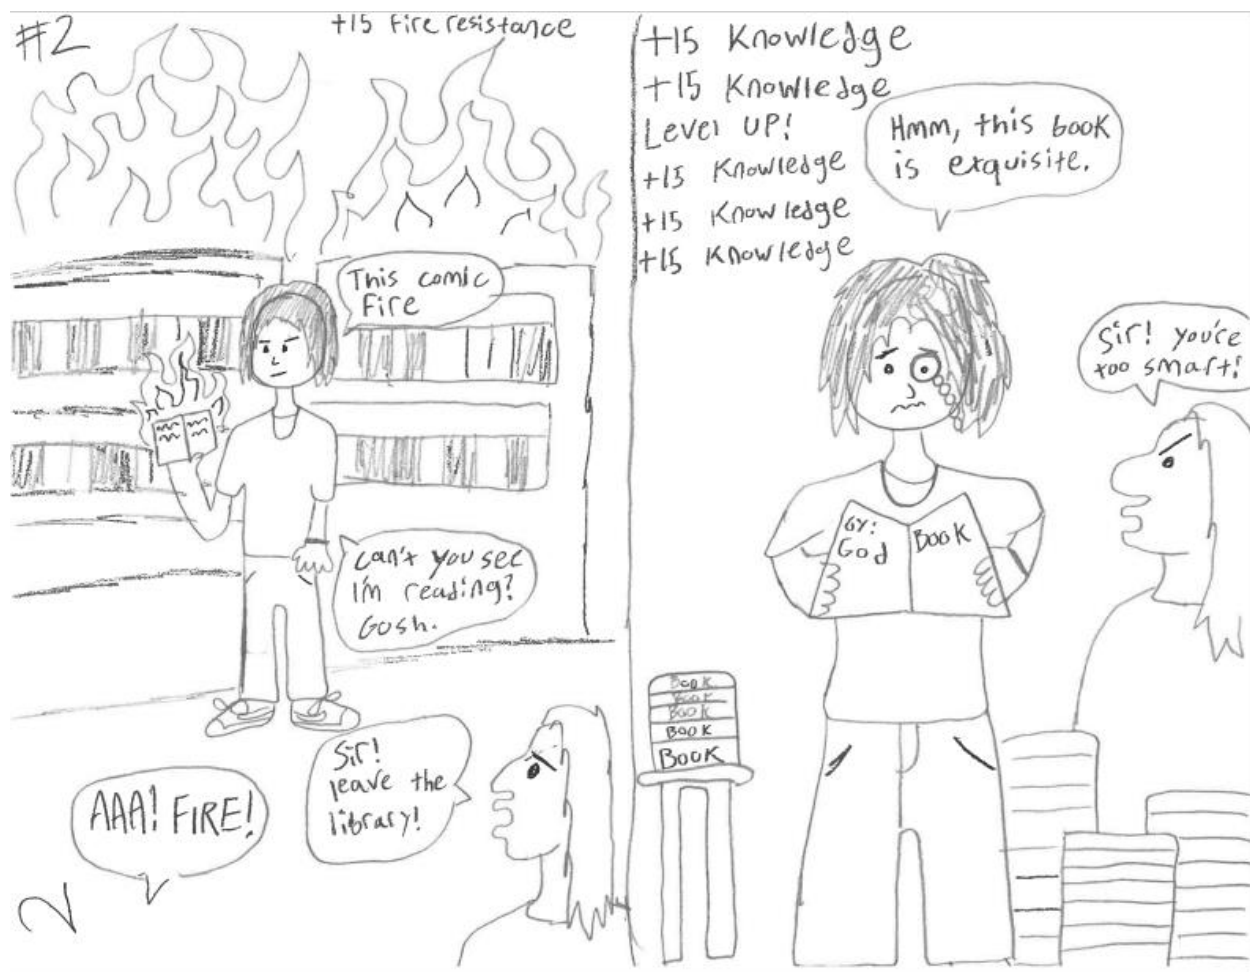 #2
+15 Fire resistance
This comic
Fire
Can't you see
I'm reading?
Gosh.
Sir!
leave the
library!
AAA! FIRE!
2
+15 Knowledge
+15 Knowledge
Level UP!
+15 Knowledge
+15 Knowledge
+15 Knowledge
Hmm, this book
is exquisite.
Sir! you're
too smart!
BY:
God
BOOK
Book
Book
Book
BOOK
BOOK